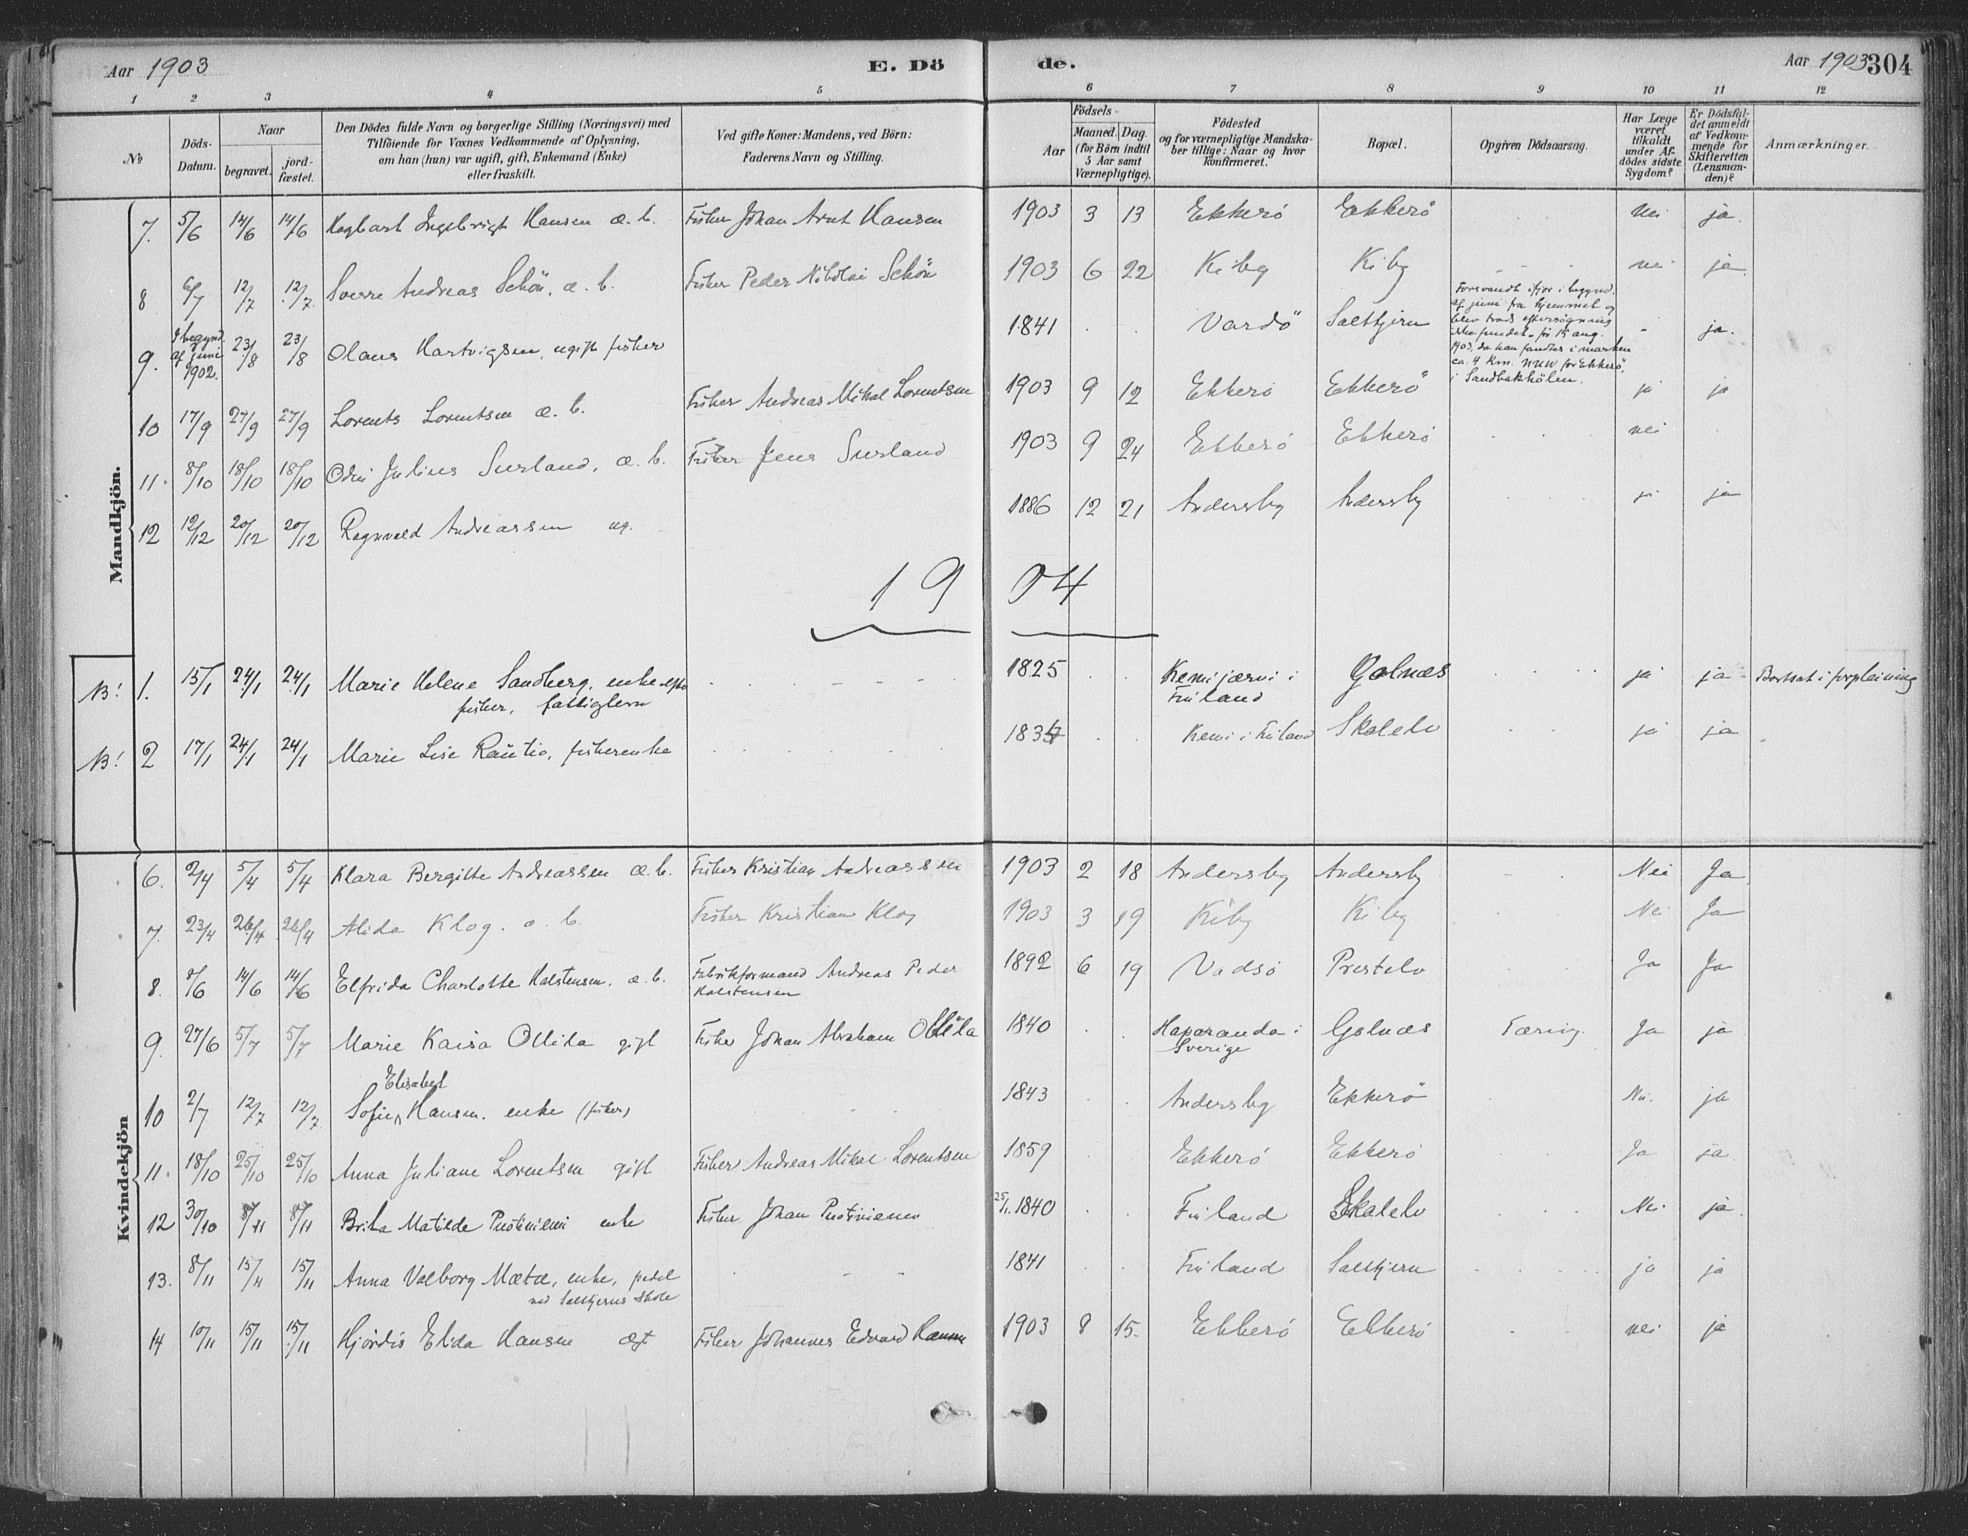 Aar 1903 E. Dö de. Aar 1903 304
1 2 3 4 5 6 7 8 9 10 11 12
№ Döds-Datum. Naar begravet. jord-fæstet. Den Dödes fulde Navn og borgerlige Stilling (Næringsvei) med Tilföiende for Voxnes Vedkommende af Oplysning, om han (hun) var ugift, gift, Enkemand (Enke) eller fraskilt. Ved gifte Koner: Mandens, ved Börn: Faderens Navn og Stilling. Födsels- Aar Maaned. Dag. (for Börn indtil 5 Aar samt Værnepligtige). Födested og for værnepligtige Mandskaber tillige: Naar og hvor Konfirmeret. Bopæl. Opgiven Dödsaarsag. Har Læge været tilkaldt under Afdödes sidste Sygdom? Er Dödsfaldet anmeldt af Vedkommende for Skifteretten (Lensmanden)? Anmærkninger.
Mandkjön.
7. 5/6 14/6 14/6 Hagbart Ingebrigt Hansen æ. b. Fisker Johan Arnt Hansen 1903 3 13 Ekkerö Ekkerö nei ja.
8 6/7 12/7 12/7. Sverre Andreas Schön, æ. b. Fisker Peder Nikolai Schön 1903 6 22 Kiby Kiby nei ja.
9. I begynd. af juni 1902. 23/8 23/8 Olaus Hartvigsen, ugift fisker 1841 Vardö Saltkjern Forsvandt ifjor i begynd. af juni fra hjemmet og blev trods eftersøgning ikke fundet før 15 aug. 1903, da han fandtes i marken ca. 4 Km. NNW for Ekkerö, i Sandbakhölen. ja.
10 17/9 27/9 27/9 Lorents Lorentsen æ. b. Fisker Andreas Mikal Lorentsen 1903 9 12 Ekkerö Ekkerö ja ja
11. 8/10 18/10 18/10 Odin Julius Surland, æ. b. Fisker Jens Surland 1903 9 24 Ekkerö Ekkerö nei
12 12/12 20/12 20/12 Ragnvald Andreassen ug. 1886 12 21 Andersby Andersby ja ja
1904
NB! 1. 15/1 24/1 24/1 Marie Helene Sandberg, enke efter fisker, fattiglem 1825 Kemijærvi i Finland Golnæs ja ja Bortsat i forpleining
NB! 2 17/1 24/1 24/1 Marie Lise Rautio, fiskerenke Kemi i Finland Skalelv ja ja
Kvindekjön
6. 2/4 5/4 5/4 Klara Bergitte Andreassen æ. b. Fisker Kristian Andreassen 1903 2 18 Andersby Andersby Nei Ja
7. 23/4 26/4 26/4 Alida Klog. æ. b. Fisker Kristian Klog 1903 3 19 Kiby Kiby Nei Ja
8. 8/6 14/6 14/6 Elfrida Charlotte Halstensen. æ. b. Fabrikformand Andreas Peder Halstensen 1892 6 19 Vadsö Prestelv Ja Ja
9. 27/6 5/7 5/7 Marie Kaisa Ollila gift Fisker Johan Abraham Ollila 1840 Haparanda i Sverige Golnæs Tæring Ja ja
10 2/7 12/7 12/7 Sofie Elisabet Hansen. enke (fisker) 1843 Andersby Ekkerö Nei. ja
11. 18/10 25/10 25/10 Anna Juliane Lorentsen gift Fisker Andreas Mikal Lorentsen 1859 Ekkerö Ekkerö Ja ja.
12 30/10 8/11 8/11 Brita Matilde Pustiniemi enke Fisker Johan Pustiniemi 25/1. 1840 Finland Skalelv Nei ja.
13. 8/11 15/11 15/11 Anna Valborg Mætæ, enke, pedel ved Saltkjerns skole 1841 Finland Saltkjern ja ja
14 10/11 15/11 15/11 Hjördis Elida Hansen ægt Fisker Johannes Edvard Hansen 1903 8 15. Ekkerö Ekkerö nei ja